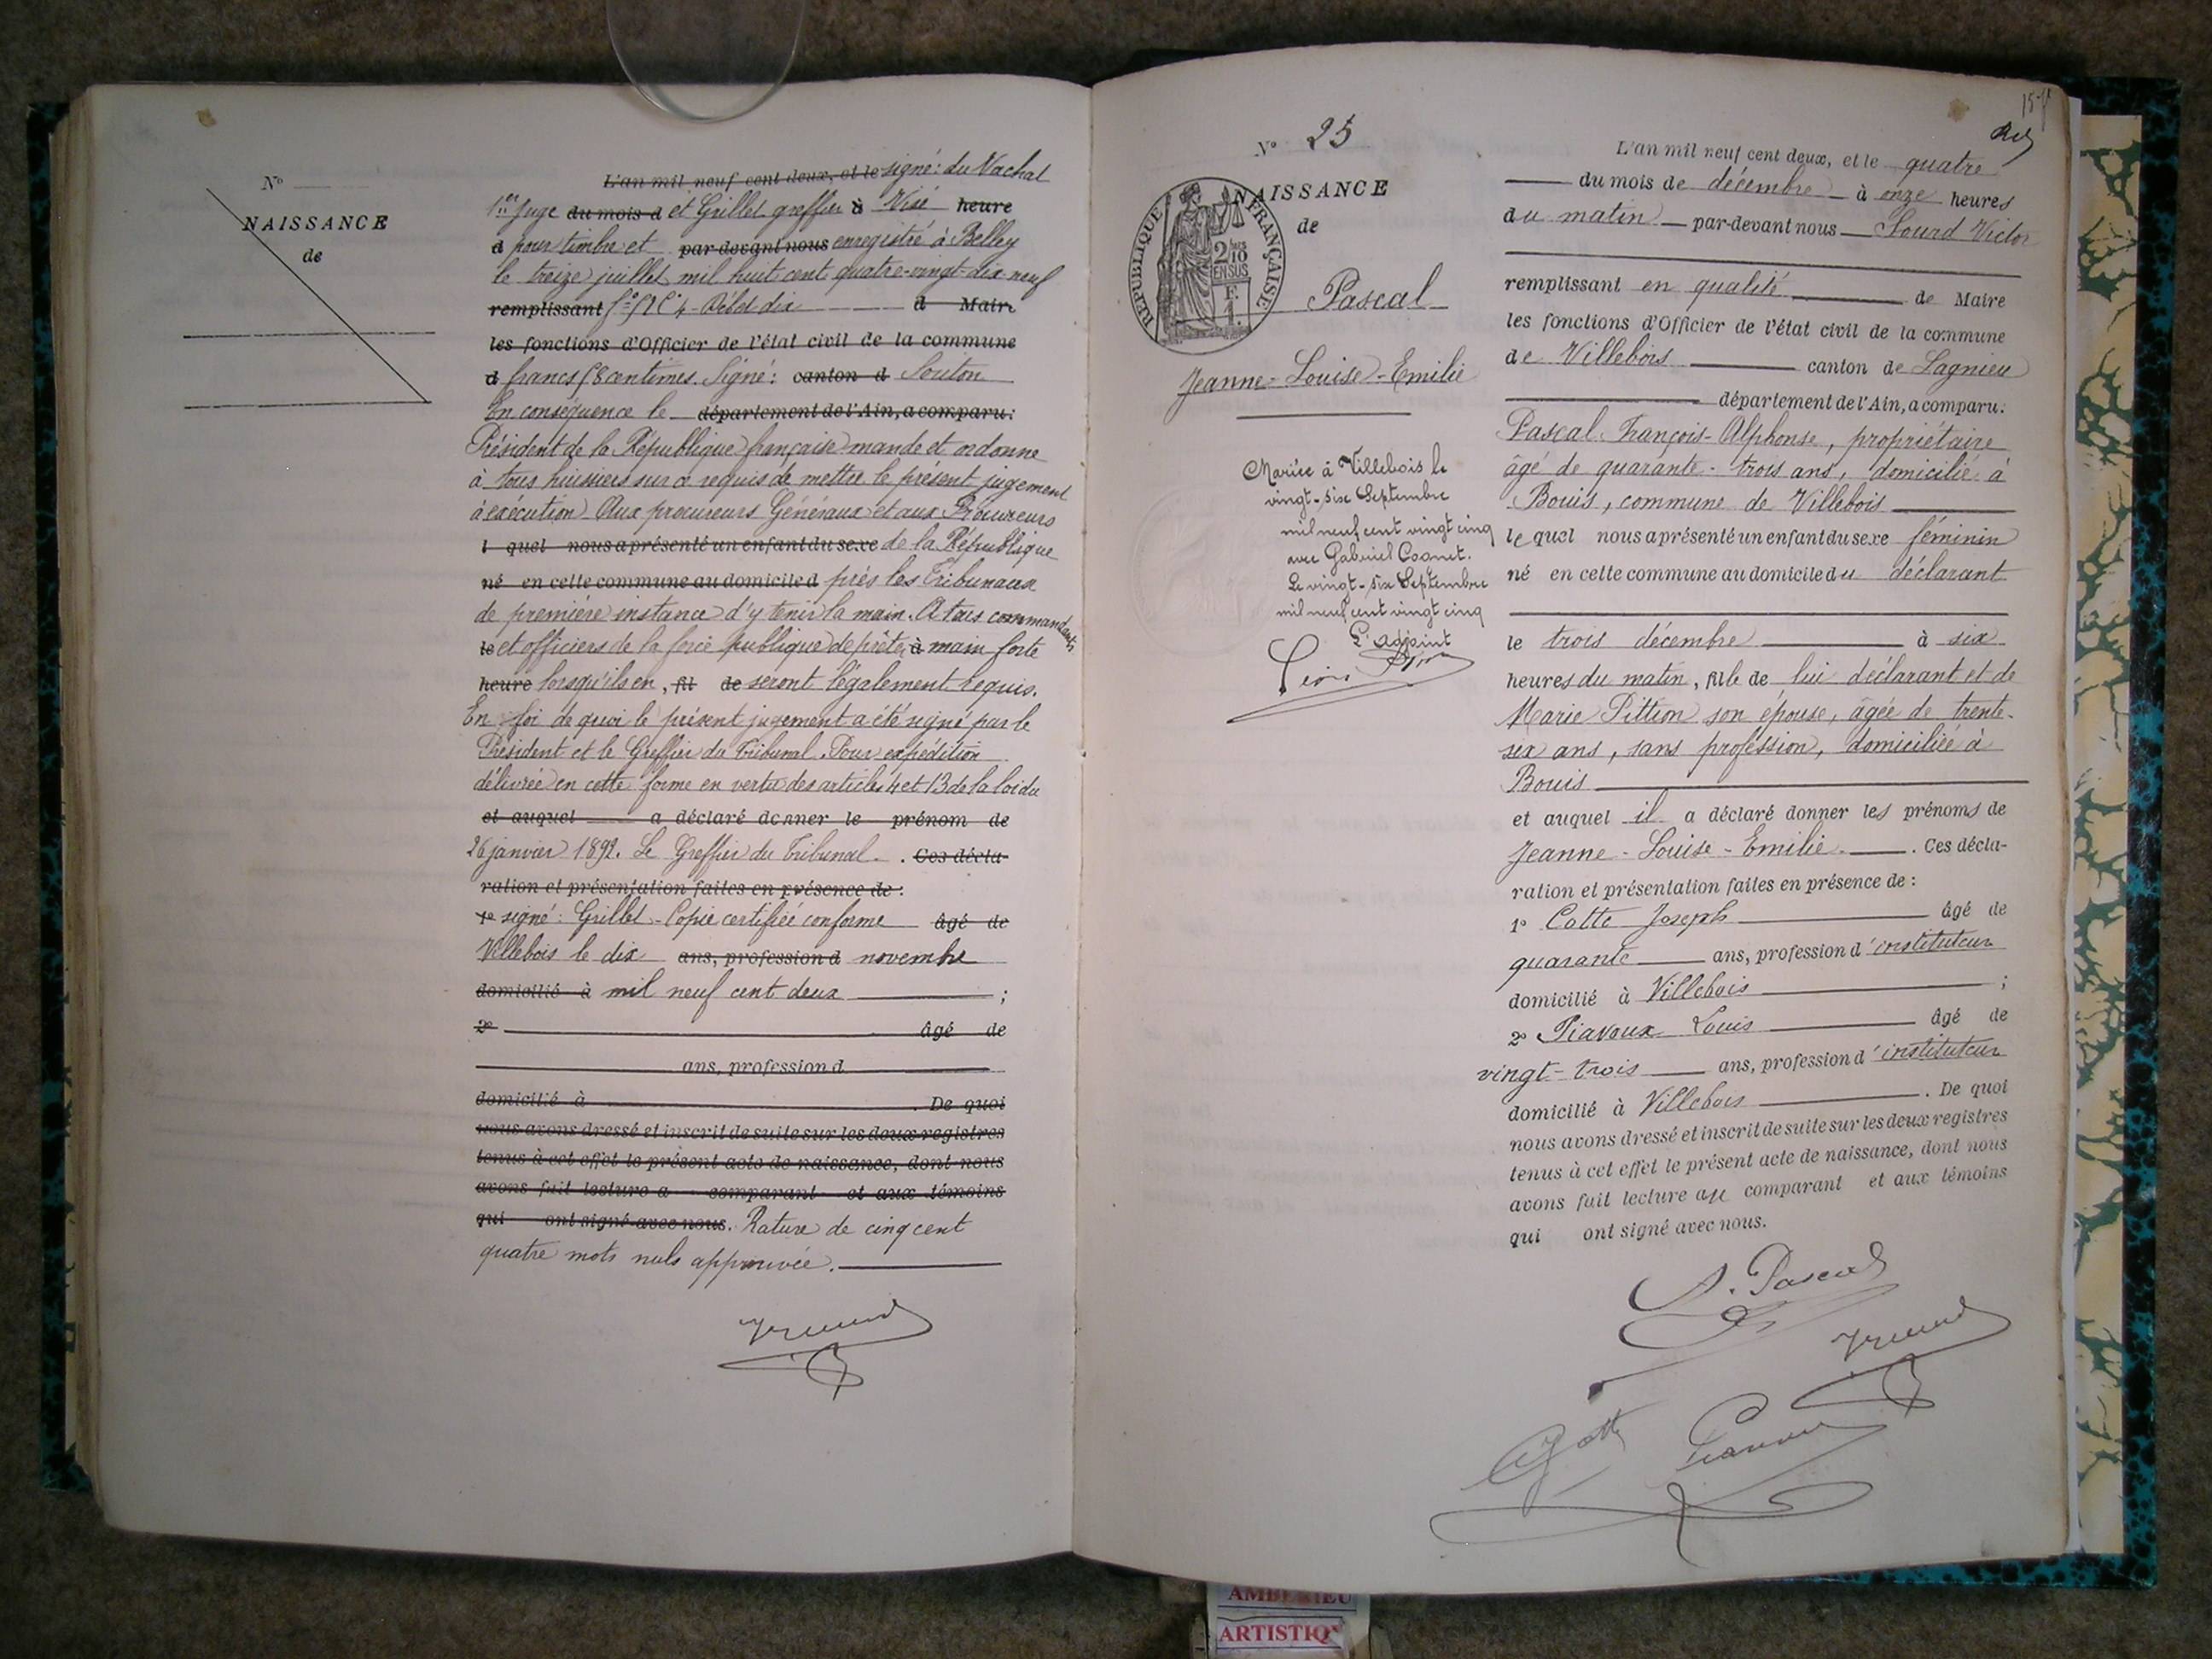 N°
NAISSANCE
de
L'an mil neuf cent deux, et le signé: du Vachat
1er Juge du mois d et Grillet greffier à Visé heure
d pour timbre et par-devant nous enregistré à Belley
le treize juillet mil huit cent quatre-vingt-dix-neuf
remplissant d Maire
les fonctions d'Officier de l'état civil de la commune
d francs 58 centimes. Signé: canton d Souton
En conséquence le département de l'Ain, a comparu:
Président de la République française mande et ordonne
à tous huissiers sur ce requis de mettre le présent jugement
à exécution. Aux procureurs Généraux et aux Procureurs
l quel nous a présenté un enfant du sexe de la République
né en cette commune au domicile d près les Tribunaux
de première instance d'y tenir la main. A tous commandants
le et officiers de la force publique de prêter à main forte
heure lorsqu'ils en, fil de seront légalement requis.
En foi de quoi le présent jugement a été signé par le
Président et le Greffier du Tribunal. Pour expédition
délivrée en cette forme en vertu des articles 4 et 13 de la loi du
et auquel a déclaré donner le prénom de
26 janvier 1892. Le Greffier du Tribunal. Ces décla-
ration et présentation faites en présence de :
1° signé: Grillet. - Copie certifiée conforme âgé de
Villebois le dix ans, profession d novembre
domicilié à mil neuf cent deux ;
2° âgé de
ans, profession d
domicilié à . De quoi
nous avons dressé et inscrit de suite sur les deux registres
tenus à cet effet le présent acte de naissance, dont nous
avons fait lecture a comparant et aux témoins
qui ont signé avec nous. Rature de cinq cent
quatre mots nuls approuvée.
N° 25
NAISSANCE
de
RÉPUBLIQUE FRANÇAISE
2/10
EN SUS
F.
1.
Pascal
Jeanne-Louise-Emilie
Mariée à Villebois le
vingt-six Septembre
mil neuf cent vingt cinq
avec Gabriel Cognet.
Le vingt-six Septembre
mil neuf cent vingt cinq
L'adjoint
L'an mil neuf cent deux, et le quatre
du mois de décembre à onze heures
du matin par-devant nous Lourd Victor
remplissant en qualité de Maire
les fonctions d'Officier de l'état civil de la commune
de Villebois canton de Lagnieu
département de l'Ain, a comparu:
Pascal François-Alphonse, propriétaire
âgé de quarante-trois ans, domicilié à
Bouis, commune de Villebois
lequel nous a présenté un enfant du sexe féminin
né en cette commune au domicile du déclarant
le trois décembre à six
heures du matin, fille de lui déclarant et de
Marie Pittion son épouse, âgée de trente-
six ans, sans profession, domiciliée à
Bouis
et auquel il a déclaré donner les prénoms de
Jeanne-Louise-Emilie. Ces décla-
ration et présentation faites en présence de :
1° Cotte Joseph âgé de
quarante ans, profession d'instituteur
domicilié à Villebois ;
2° Piavoux Louis âgé de
vingt-trois ans, profession d'instituteur
domicilié à Villebois . De quoi
nous avons dressé et inscrit de suite sur les deux registres
tenus à cet effet le présent acte de naissance, dont nous
avons fait lecture au comparant et aux témoins
qui ont signé avec nous.
A. Pascal
AMBERIEU
ARTISTIQ